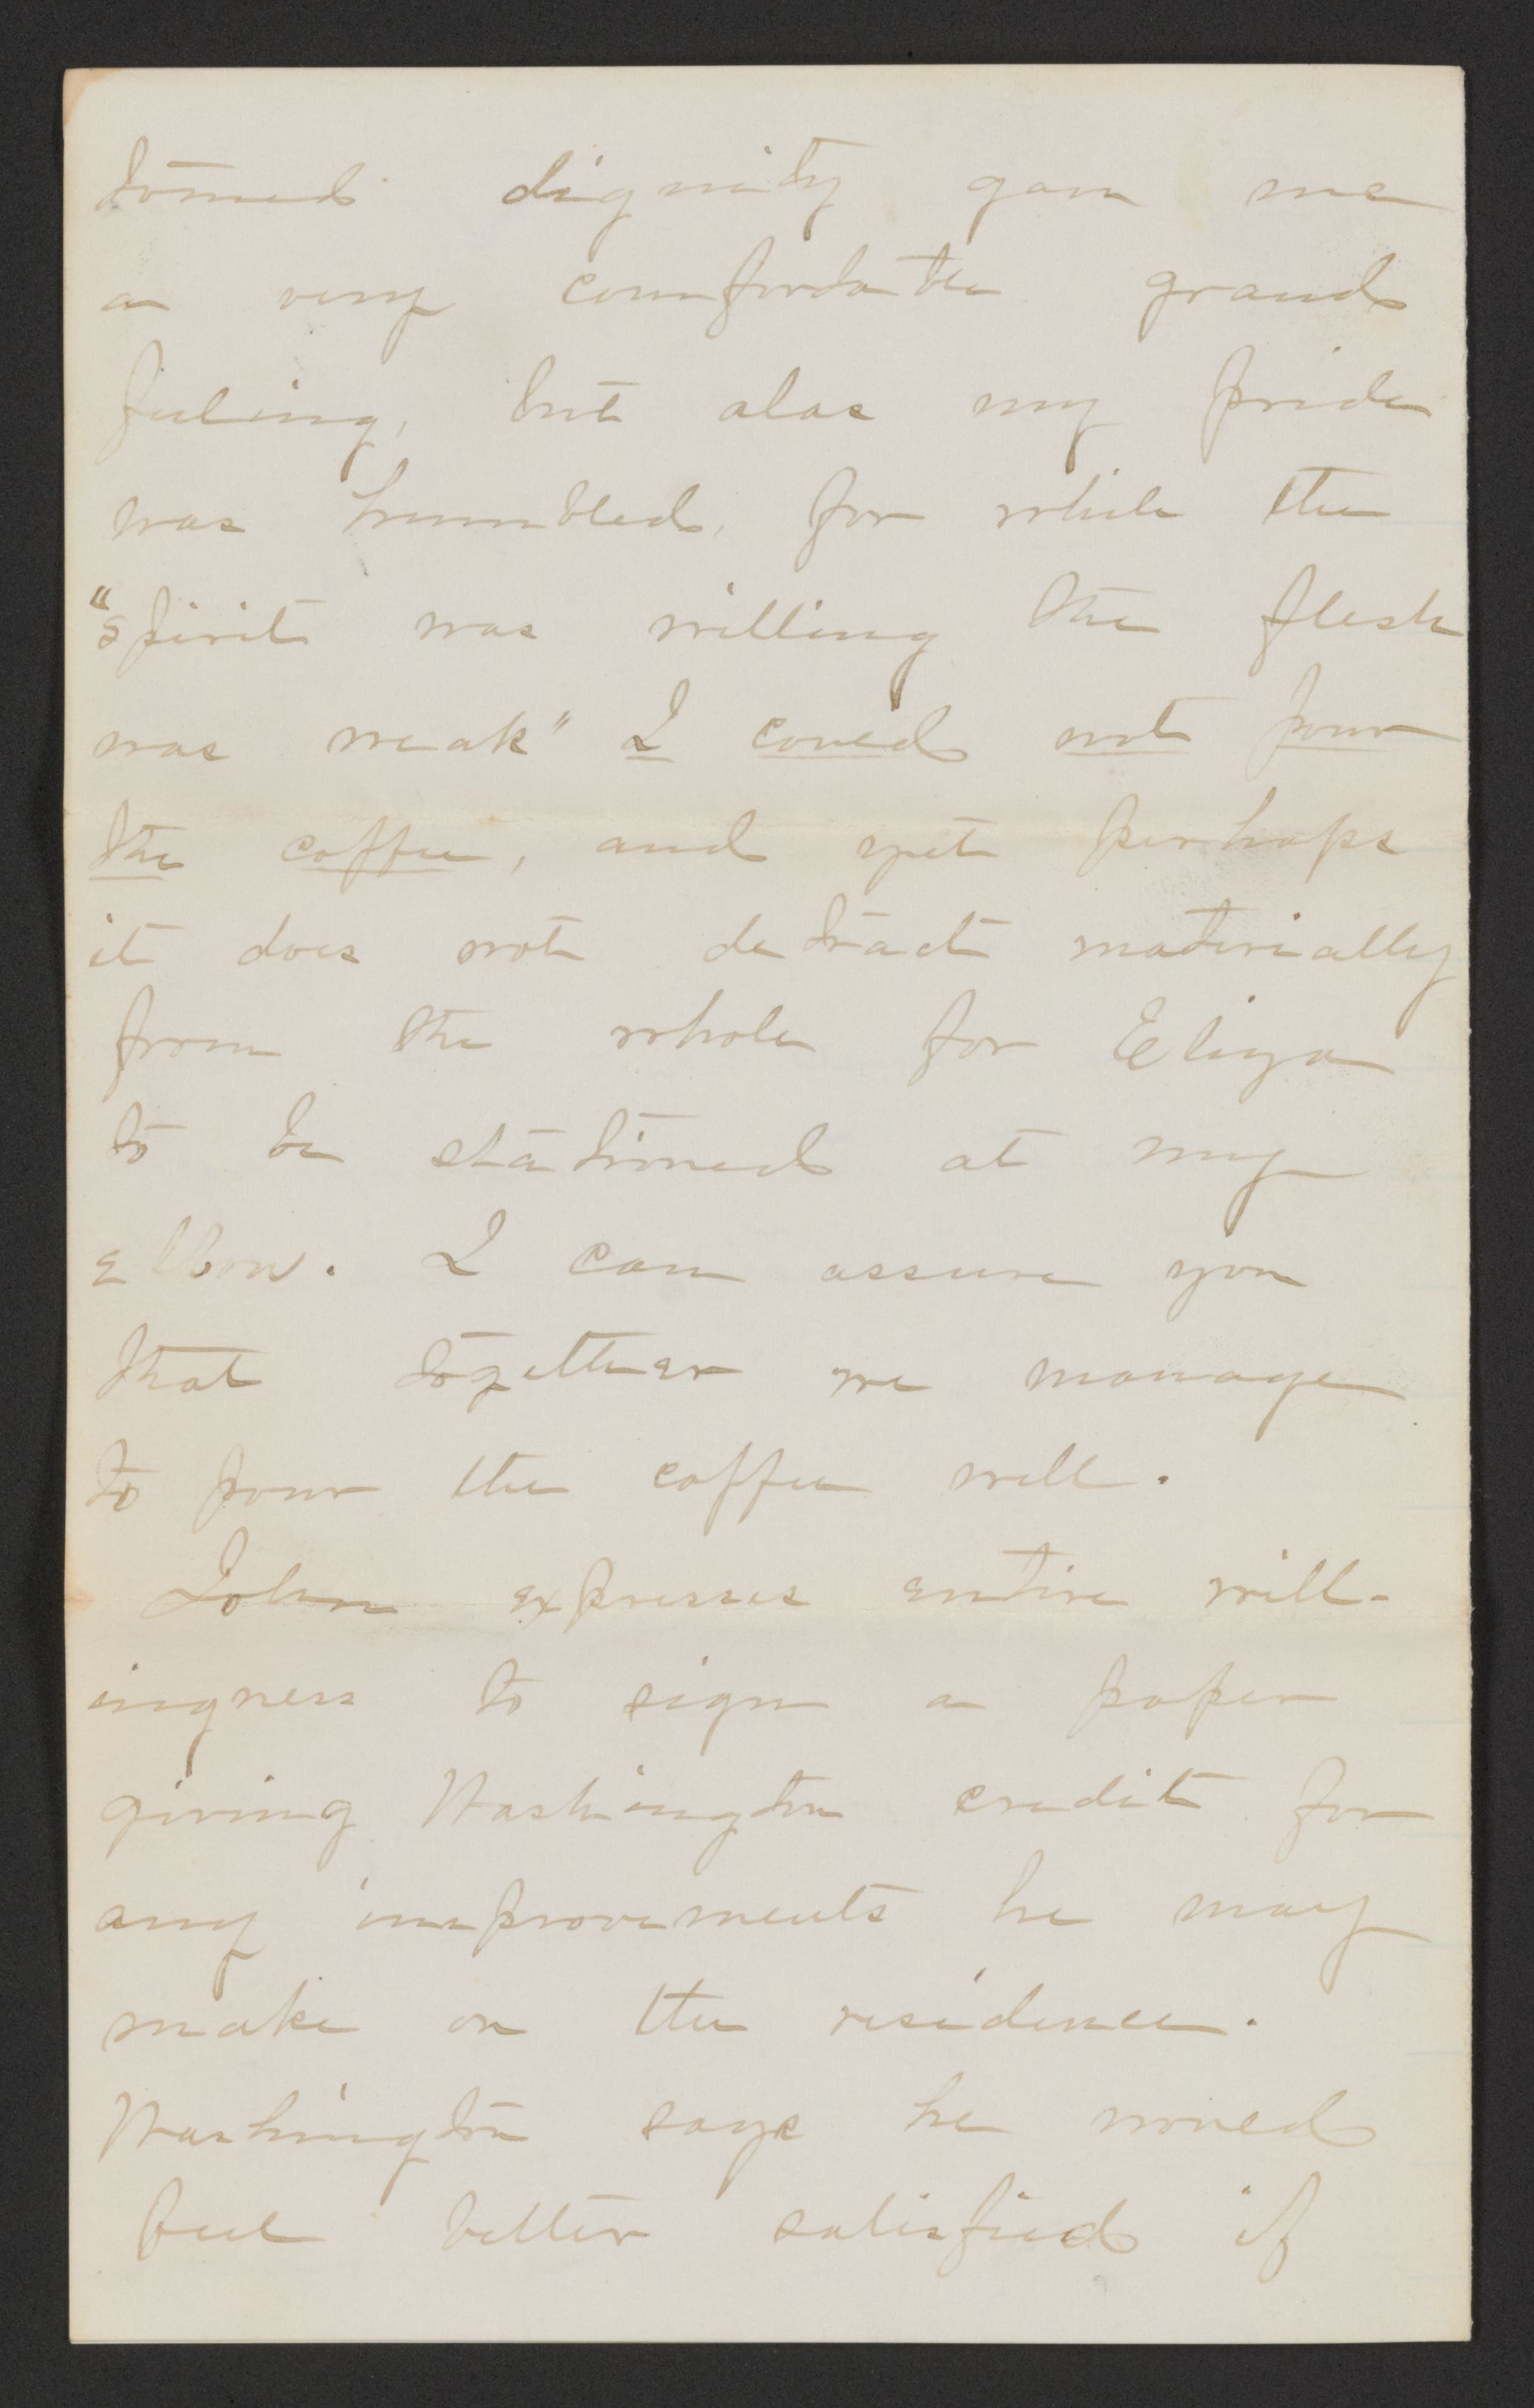 tomed dignity gave me
a very comfortable grand
feeling, but alas my pride
was humbled, for while the
"spirit was willing the flesh
was weak" I could not pour
the coffee, and yet perhaps
it does not detract materially
from the whole for Eliza
to be stationed at my
elbow. I can assure you
that together we manage
to pour the coffee well.
John expresses entire will-
ingness to sign a paper
giving Washington credit for
any improvements he may
make on the residence.
Washington says he would
feel better satisfied if